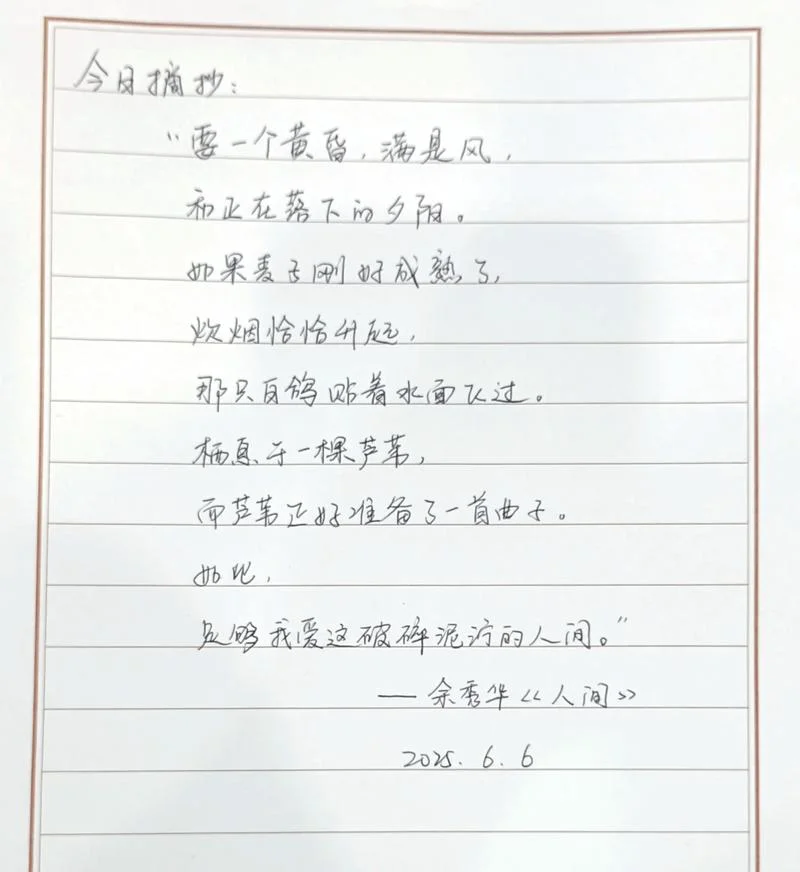 今日摘抄：
“要一个黄昏，满是风，
和正在落下的夕阳。
如果麦子刚好成熟了，
炊烟恰恰升起，
那只白鸽贴着水面飞过。
栖息于一棵芦苇，
而芦苇正好准备了一首曲子。
如此，
足够我爱这破碎泥泞的人间。”
——余秀华《人间》
2025.6.6